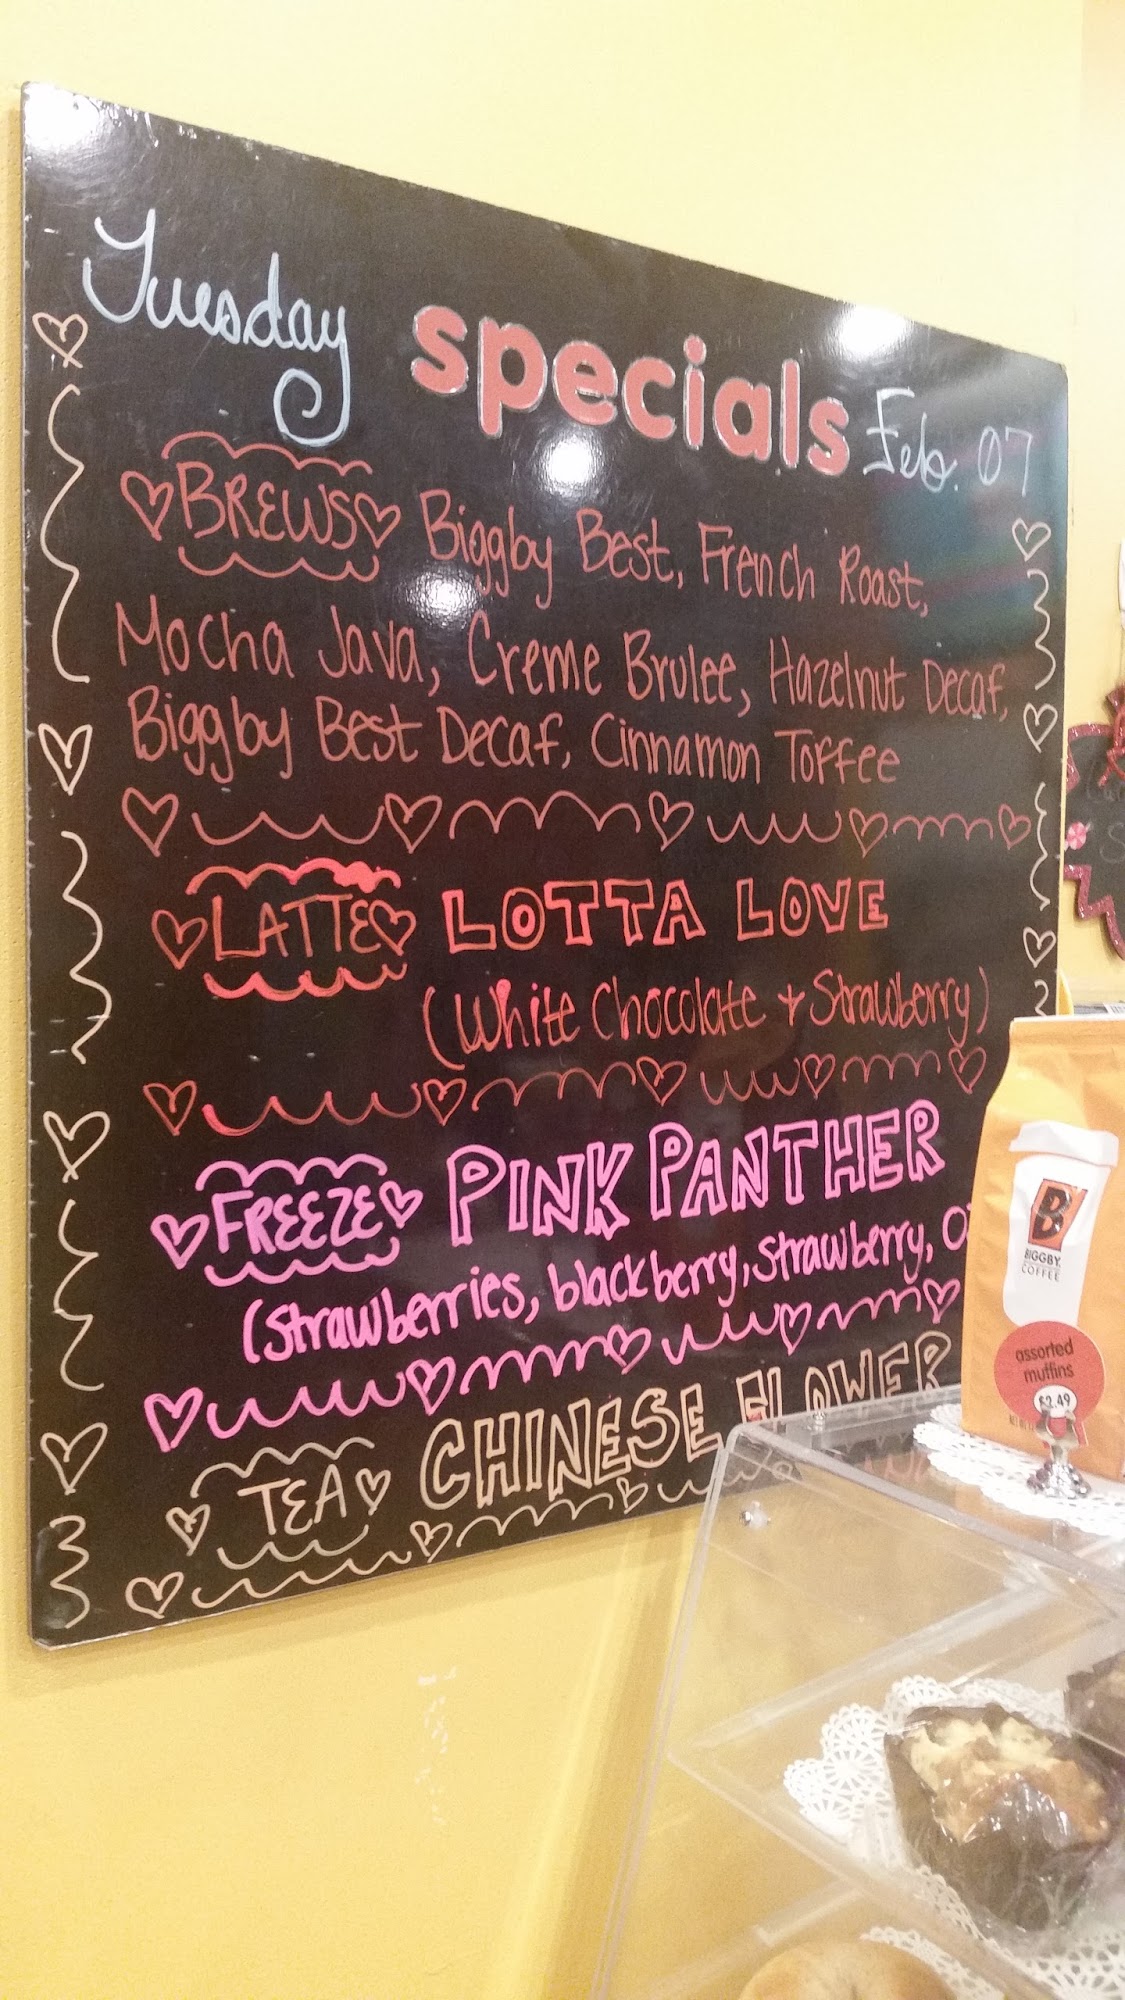 Tuesday specials Feb. 07
BREWS Biggby Best, French Roast,
Mocha Java, Creme Brulee, Hazelnut Decaf,
Biggby Best Decaf, Cinnamon Toffee
LATTE LOTTA LOVE
(White Chocolate + Strawberry)
FREEZE PINK PANTHER
(Strawberries, blackberry, strawberry,
TEA CHINESE FLOWER
B
BIGGBY
COFFEE
assorted
muffins
$2.49